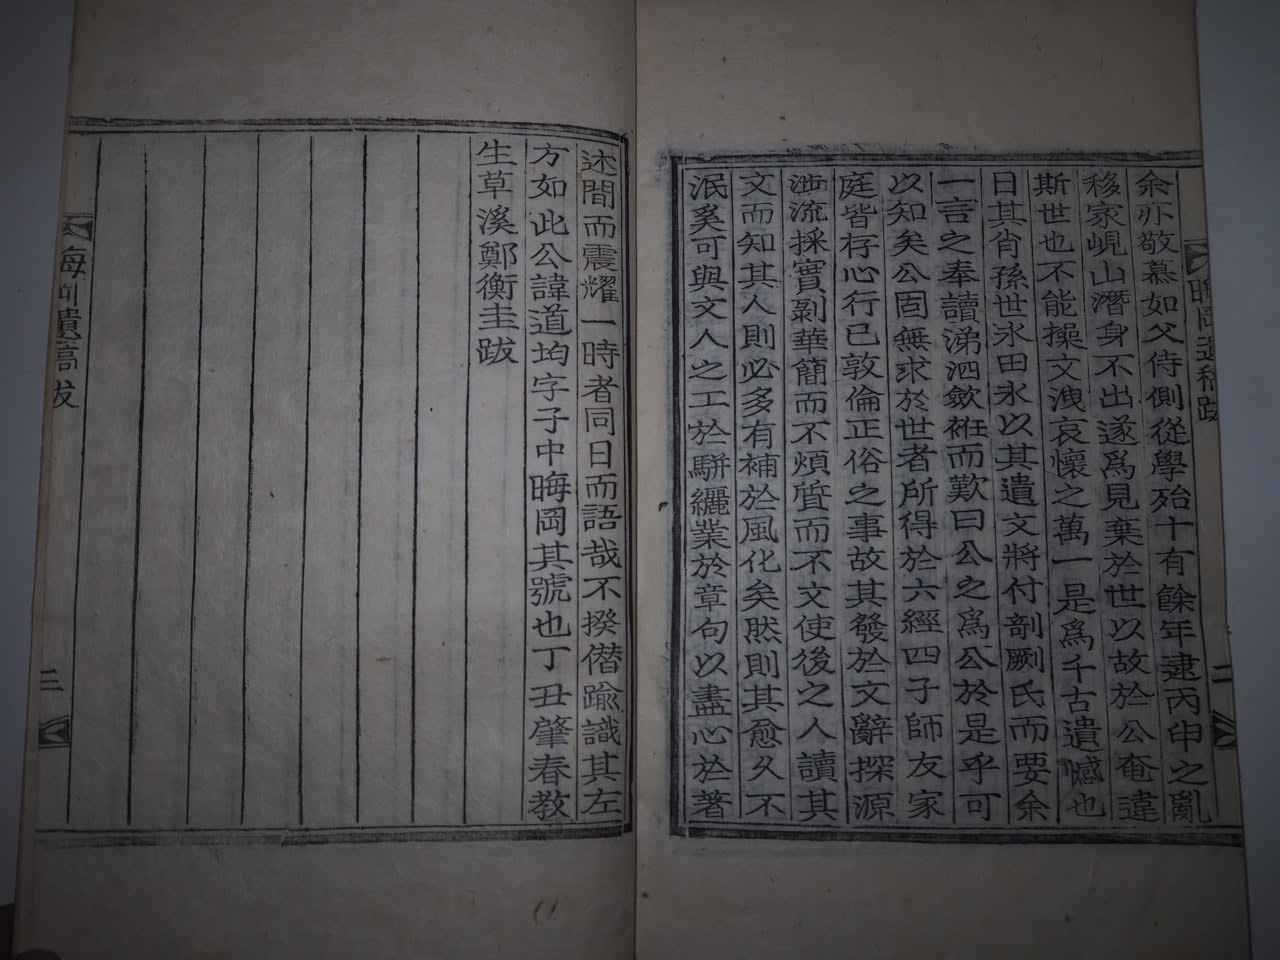 余亦敬慕如父侍側從學殆十有餘年逮丙申之亂
移家峴山潛身不出遂爲見棄於世以故於公奄違
斯世也不能操文洩哀懷之萬一是爲千古遺憾也
日其肖孫世永田永以其遺文將付剞劂氏而要余
一言之奉讀涕泗歛袵而歎曰公之爲公於是乎可
以知矣公固無求於世者所得於六經四子師友家
庭皆存心行已敦倫正俗之事故其發於文辭探源
泝流採實剥華簡而不煩質而不文使後之人讀其
文而知其人則必多有補於風化矣然則其愈久不
泯奚可與文人之工於騈儷業於章句以盡心於著
述間而震耀一時者同日而語哉不揆僭踰識其左
方如此公諱道均字子中晦岡其號也丁丑肇春敎
生草溪鄭衡圭跋
晦岡遺稿跋
二
三